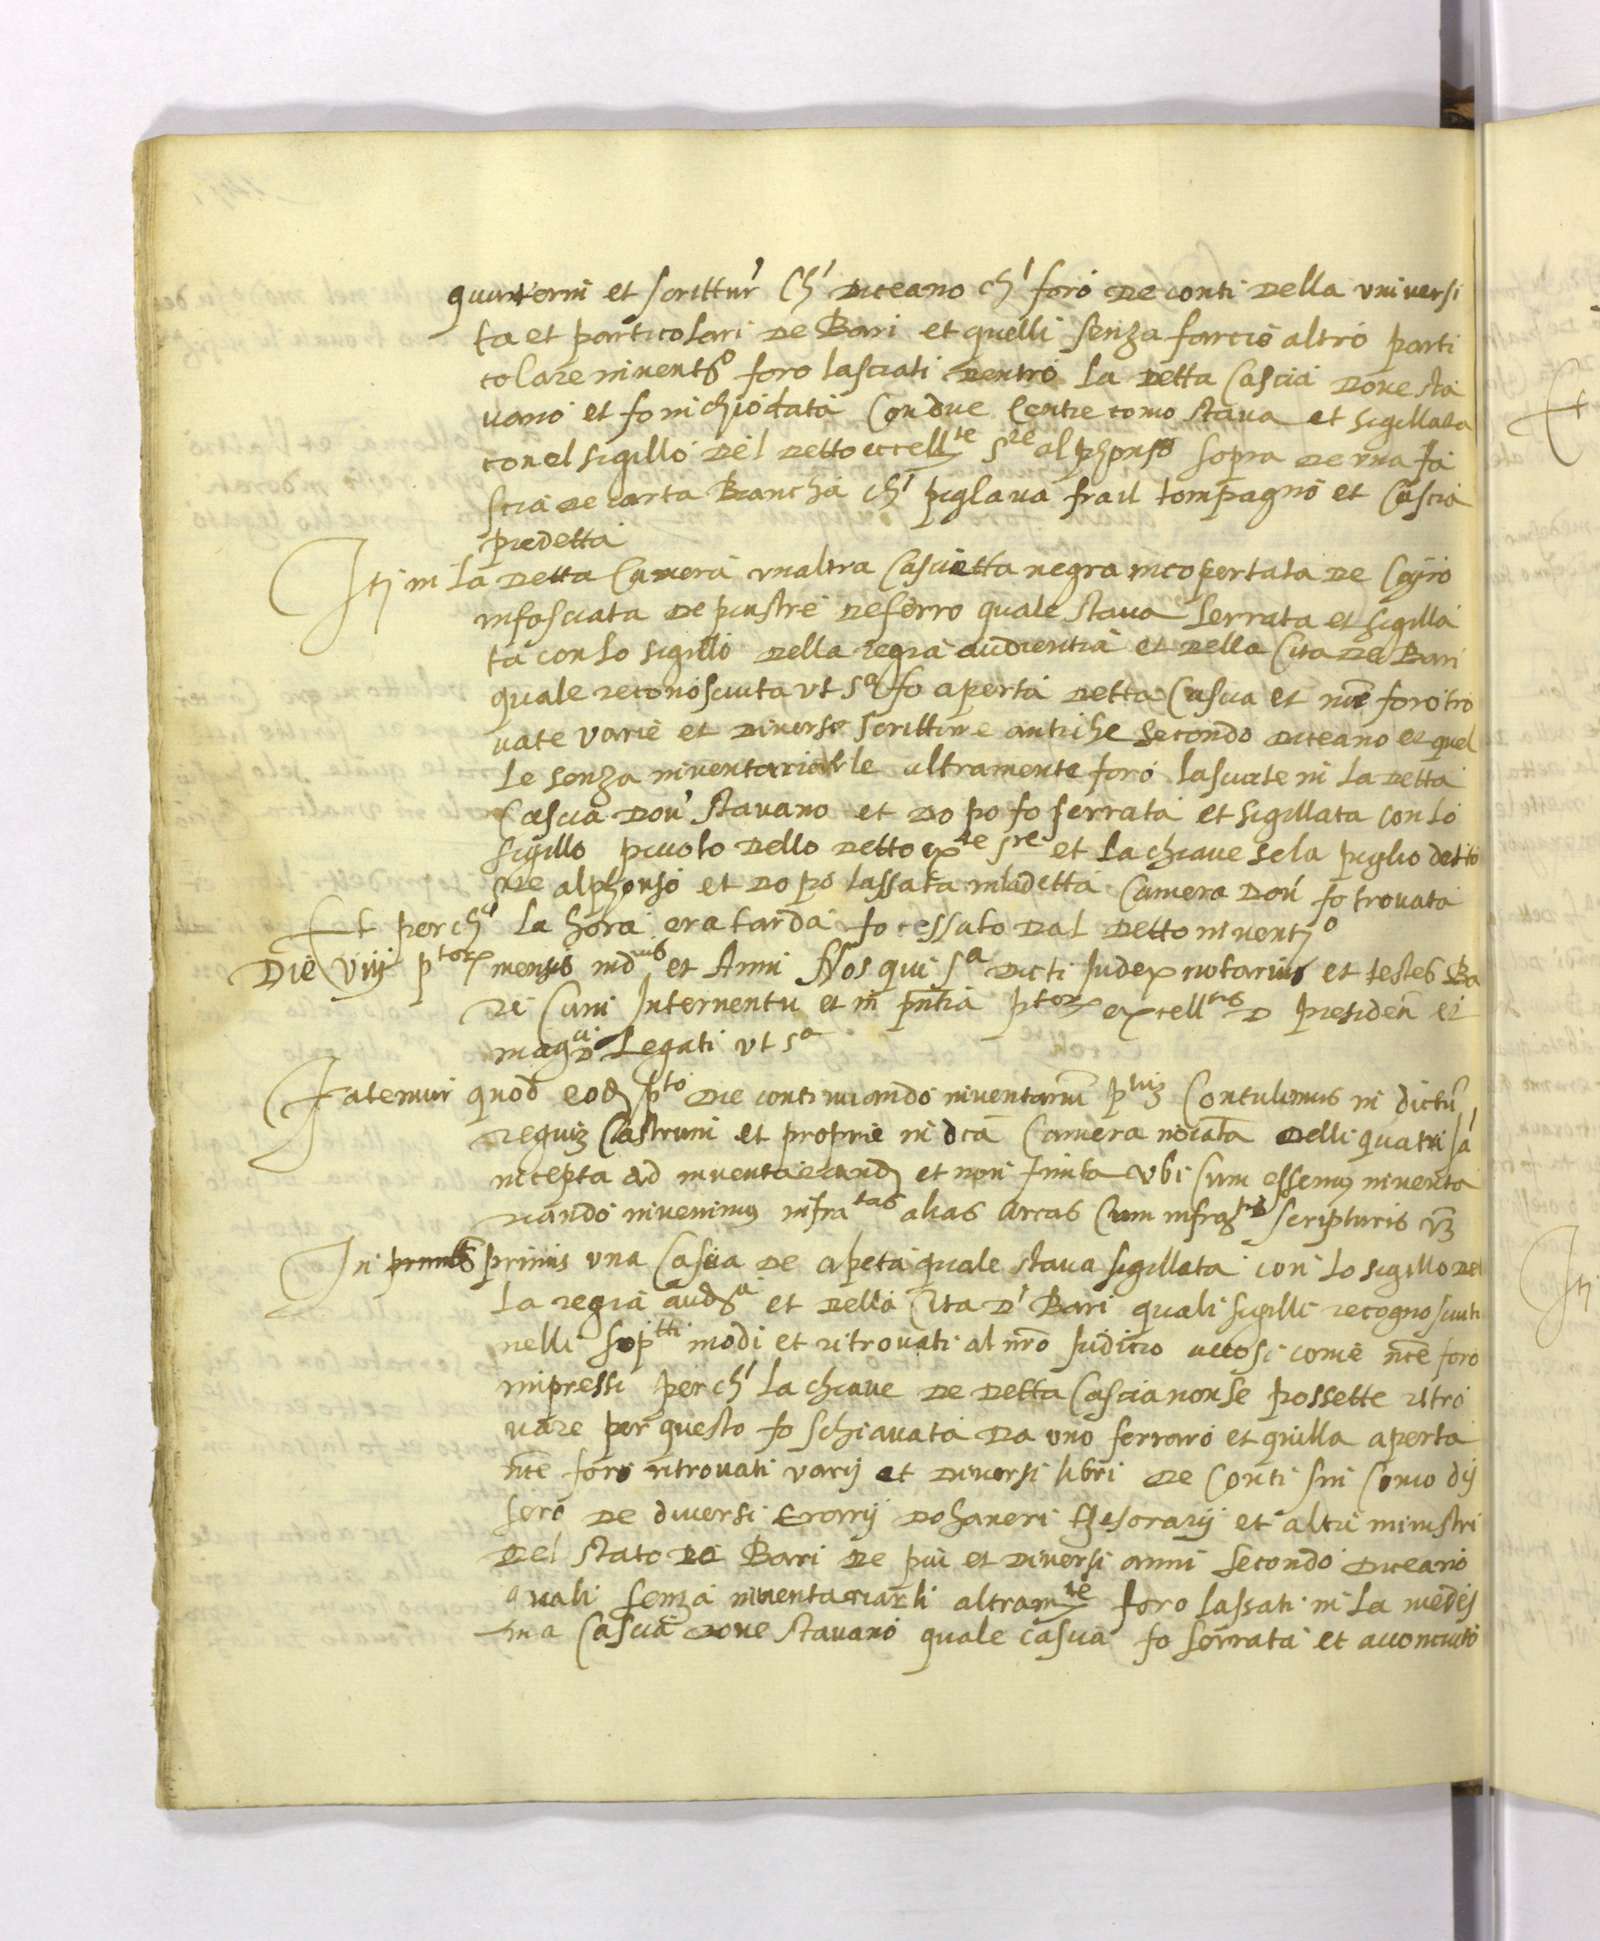 quinterni et scrittur' Ch' diceano ch' foro de conti della universi
ta et particolari de Bari et quelli senza farcie altro parti
colare invent.º foro lasciati dentro la detta Cascia dove sta
vano et fo inchiodata Con due centre como stava et sigillata
con el sigillo del detto eccell.te s.re alphonso sopra de una fa
scia de carta Biancha ch' piglava fra il tompagno et Cascia
predetta
Itj in la detta Camera unaltra Cascietta negra incopertata de Coyro
infasciata de piastre de ferro quale stava serrata et sigilla
ta con lo sigillo della regia audientia et della Cita de Bari
quale reconosciuta ut s.a fo aperta detta Cascia et nce foro tro
vate varie et diverse scritture antiche secondo diceano et quel
le senza inventariarle altramente foro lasciate in la detta
Cascia dov' stavano et do po fo serrata et sigillata con lo
sigillo picciolo dello detto ex.te s.re et la chiave se la piglio detto
s.re alphonso et do po lassata in la detta Camera dov' fo trovata
Et perch' la hora era tarda fo cessato dal detto invent.º
Die viij p.tor mensis ind.nis et Anni Nos qui s.a dicti Judex notarius et testes Ba
ri Cum Interventu et in pntia p.tor excell.tis D presiden et
mag.ci D Legati ut s.a
Fatemur quod eod p.to die continuando inventariu p.tuz Contulimus in dictu
reguiz Castrum et proprie in dca Camera noiata delli quatri ja
incepta ad inventariand et non finita ubi Cum essemus inventa
riando invenimus infra.tas alias arcas Cum infra.tis scripturis vz
In primis primis una Cascia de apeta quale stava sigillata con lo sigillo del
la regia aud.a et della Cita d' Bari quali sigilli recognosciuti
nelli sop.tti modi et ritrovati al nro Juditio accosi come nce foro
impressi perch' la chiave de detta Cascia non se possette ritro
vare per questo fo schiavata da uno ferraro et quilla aperta
nce foro ritrovati varij et diversi libri de Conti sin Como dis
sero de diversi Erarij dohaneri thesorarij et altri ministri
del stato de Bari de piu et diversi anni secondo diceano
quali senza inventariarli altram.te foro lassati in la medes
ma Cascia dove stavano quale cascia fo serrata et acconciato